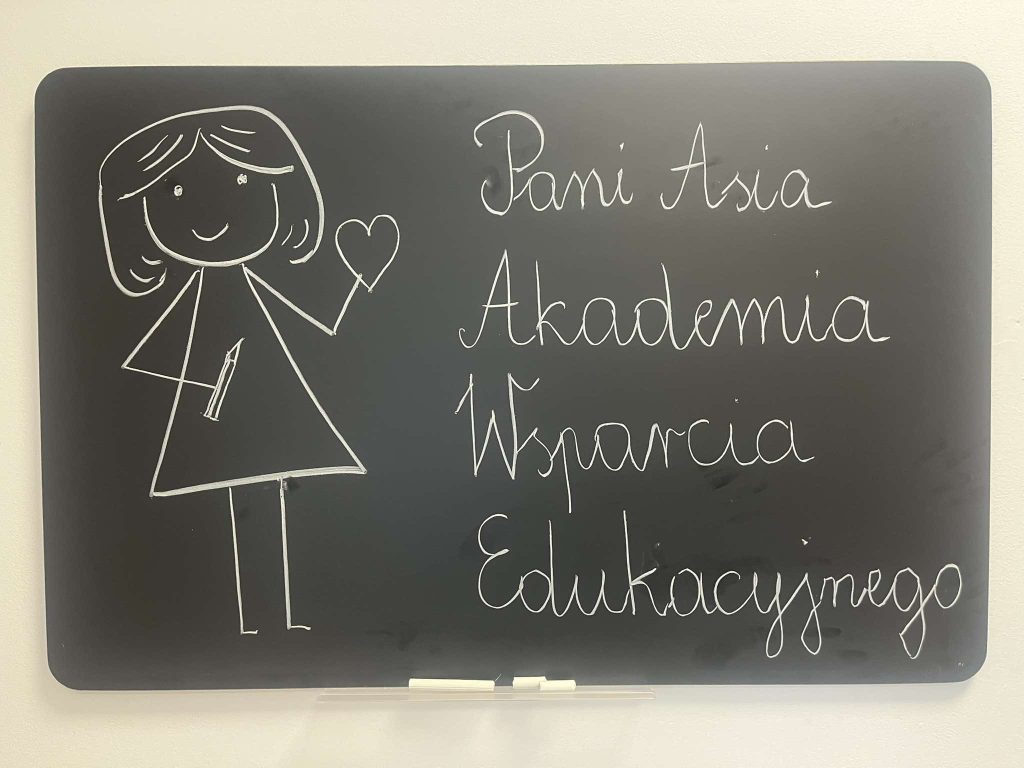 Pani Asia
Akademia
Wsparcia
Edukacyjnego